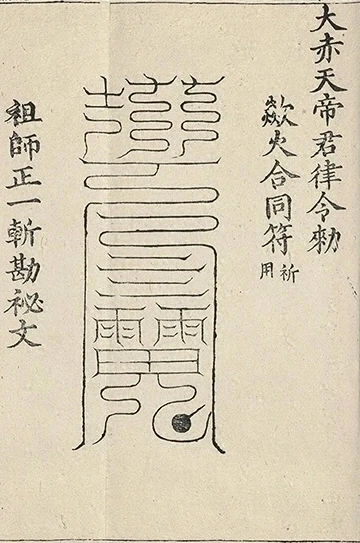 大赤天帝君律令勑
火合同符 祈用
祖師正一斬勘祕文